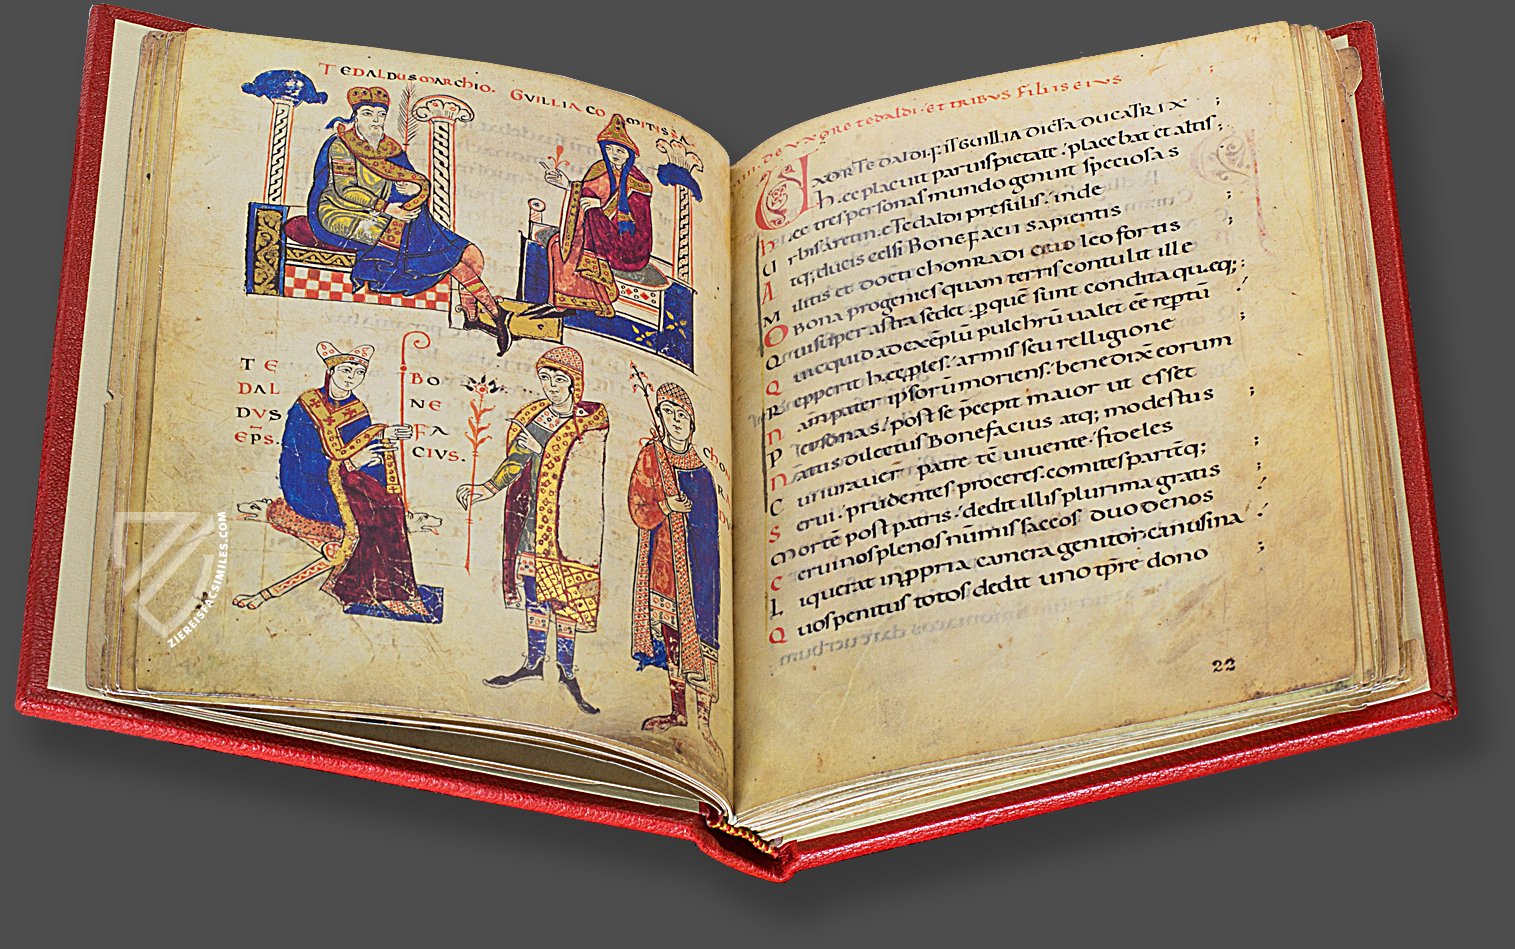 TEDALDUS MARCHIO. GUILLIA COMITISSA
TE
DAL
DVS
EPS.
BO
NE
FA
CIVS.
CHO
RA
ZIEREISFACSIMILES.COM
DE UXORE TEDALDI. ET TRIBVS FILIIS EIVS
UXOR TEDALDI FIT GUILLIA DICTA DUCATRIX
hec placuit parvis pietate placebat et altis
hec tres personas mundo genuit speciosas
Urbis aretin. e Tedaldi presulis inde
Atq; ducis celsi Bonefacii sapientis
Militis et docti chonradi ceu leo fortis
O Bona progenies quam terris contulit ille
Qui super astra sedet. p quē sunt condita queq;
Quicquid ad exēplū pulchrū ualet eē reptū
Repperit hec ples. armis seu relligione
pater ipsorū moriens. benedixē eorum
psonas. post se pcepit maior ut esset
Natus dilectus Bonefacius atq; modestus
Cui iurauerī patre tē uiuente. fideles
Serui. prudentes. proceres. comites partēq;
Mortē post patris. dedit illis plurima gratis
Ceruinos plenos nūmis saccos duodenos
Liquerat in ppria camera genitor canusina
Quos penitus totos dedit uno tpre dono
22